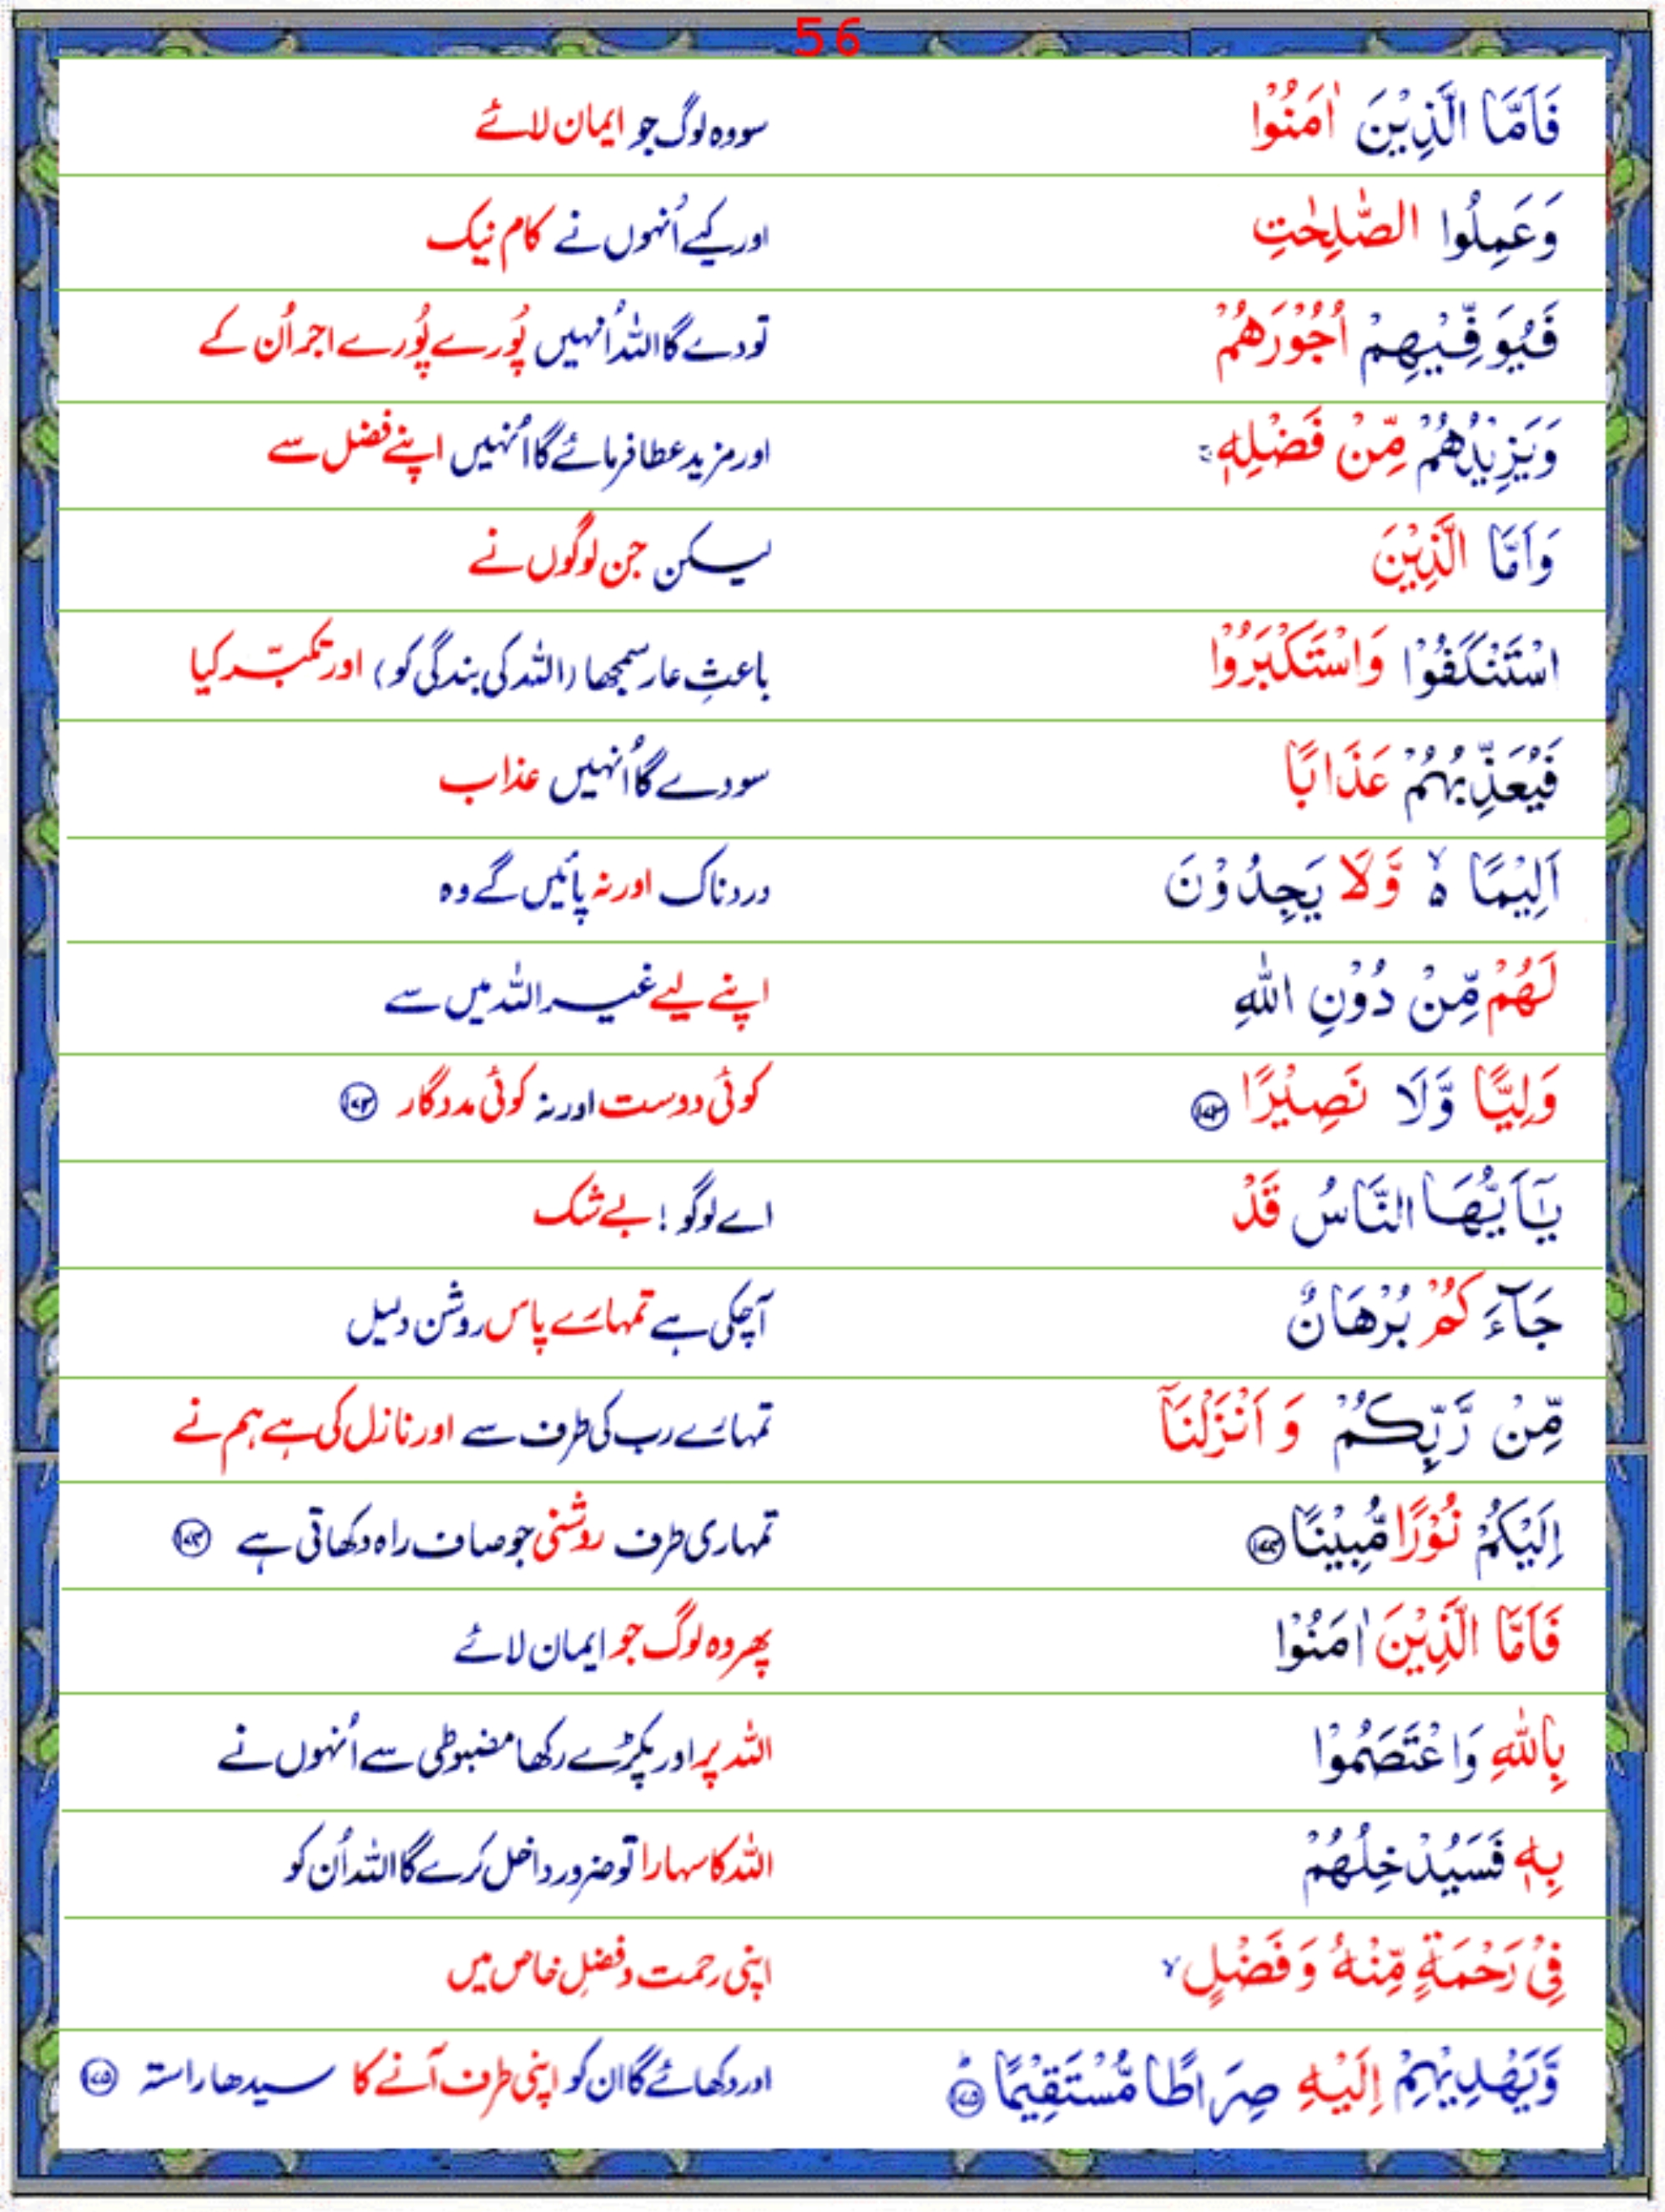 56
فَاَمَّا الَّذِیْنَ اٰمَنُوْا سو وہ لوگ جو ایمان لائے
وَعَمِلُوا الصّٰلِحٰتِ اور کیے اُنہوں نے کام نیک
فَیُوَفِّیْهِمْ اُجُوْرَهُمْ تو دے گا اللہ اُنہیں پُورے پُورے اجر اُن کے
وَیَزِیْدُهُمْ مِّنْ فَضْلِهٖ ۚ اور مزید عطا فرمائے گا اُنہیں اپنے فضل سے
وَاَمَّا الَّذِیْنَ لیکن جن لوگوں نے
اسْتَنْكَفُوْا وَاسْتَكْبَرُوْا باعثِ عار سمجھا (اللہ کی بندگی کو) اور تکبّر کیا
فَیُعَذِّبُهُمْ عَذَابًا سو دے گا اُنہیں عذاب
اَلِیْمًا ۙ۬ وَّلَا یَجِدُوْنَ دردناک اور نہ پائیں گے وہ
لَهُمْ مِّنْ دُوْنِ اللّٰهِ اپنے لیے غیر اللہ میں سے
وَلِیًّا وَّلَا نَصِیْرًا ۝۱۷۳ کوئی دوست اور نہ کوئی مددگار ۝۱۷۳
یٰۤاَیُّهَا النَّاسُ قَدْ اے لوگو! بے شک
جَآءَكُمْ بُرْهَانٌ آچکی ہے تمہارے پاس روشن دلیل
مِّنْ رَّبِّكُمْ وَ اَنْزَلْنَاۤ تمہارے رب کی طرف سے اور نازل کی ہے ہم نے
اِلَیْكُمْ نُوْرًا مُّبِیْنًا ۝۱۷۴ تمہاری طرف روشنی جو صاف راہ دکھاتی ہے ۝۱۷۴
فَاَمَّا الَّذِیْنَ اٰمَنُوْا پھر وہ لوگ جو ایمان لائے
بِاللّٰهِ وَاعْتَصَمُوْا اللہ پر اور پکڑے رکھا مضبوطی سے اُنہوں نے
بِهٖ فَسَیُدْخِلُهُمْ اللہ کا سہارا تو ضرور داخل کرے گا اللہ اُن کو
فِیْ رَحْمَةٍ مِّنْهُ وَفَضْلٍ ۙ اپنی رحمت و فضلِ خاص میں
وَّیَهْدِیْهِمْ اِلَیْهِ صِرَاطًا مُّسْتَقِیْمًا ۝۱۷۵ؕ اور دکھائے گا ان کو اپنی طرف آنے کا سیدھا راستہ ۝۱۷۵